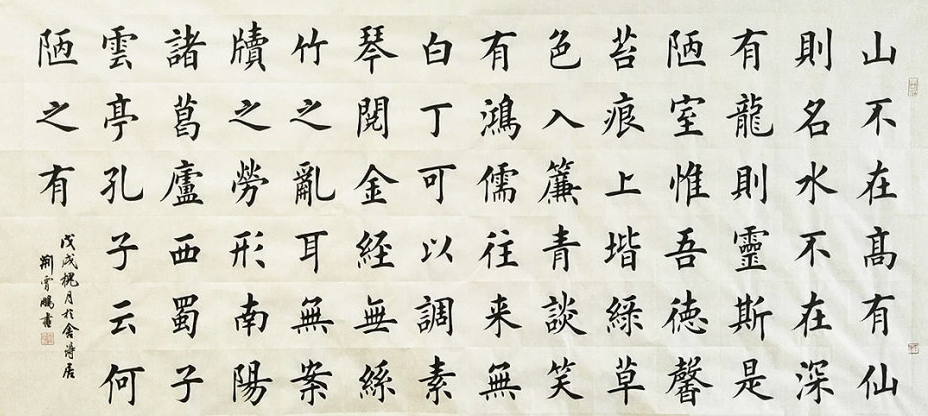 山不在高有仙
則名水不在深
有龍則靈斯是
陋室惟吾德馨
苔痕上堦綠草
色入簾青談笑
有鴻儒往来無
白丁可以調素
琴閱金經無絲
竹之亂耳無案
牘之勞形南陽
諸葛廬西蜀子
雲亭孔子云何
陋之有
戊戌槐月於舍得居
荆鵬書